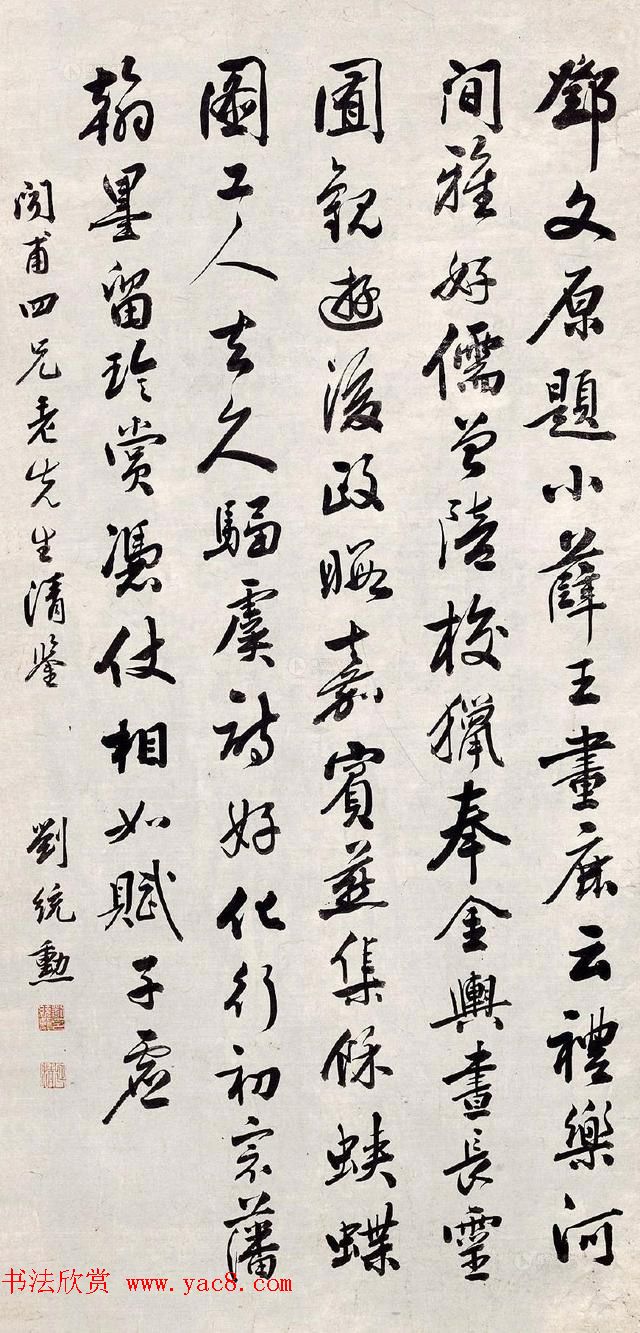 鄧文原題小薛王畫鹿云禮樂河
間雅好儒曾陪校獵奉金輿晝長靈
囿觀遊後政暇嘉賓燕集餘蛺蝶
圖工人去久騶虞詩好化行初宗藩
翰墨留珍賞憑仗相如賦子虛
甫四兄老先生清鑒
劉統勳
书法欣赏 www.yac8.com